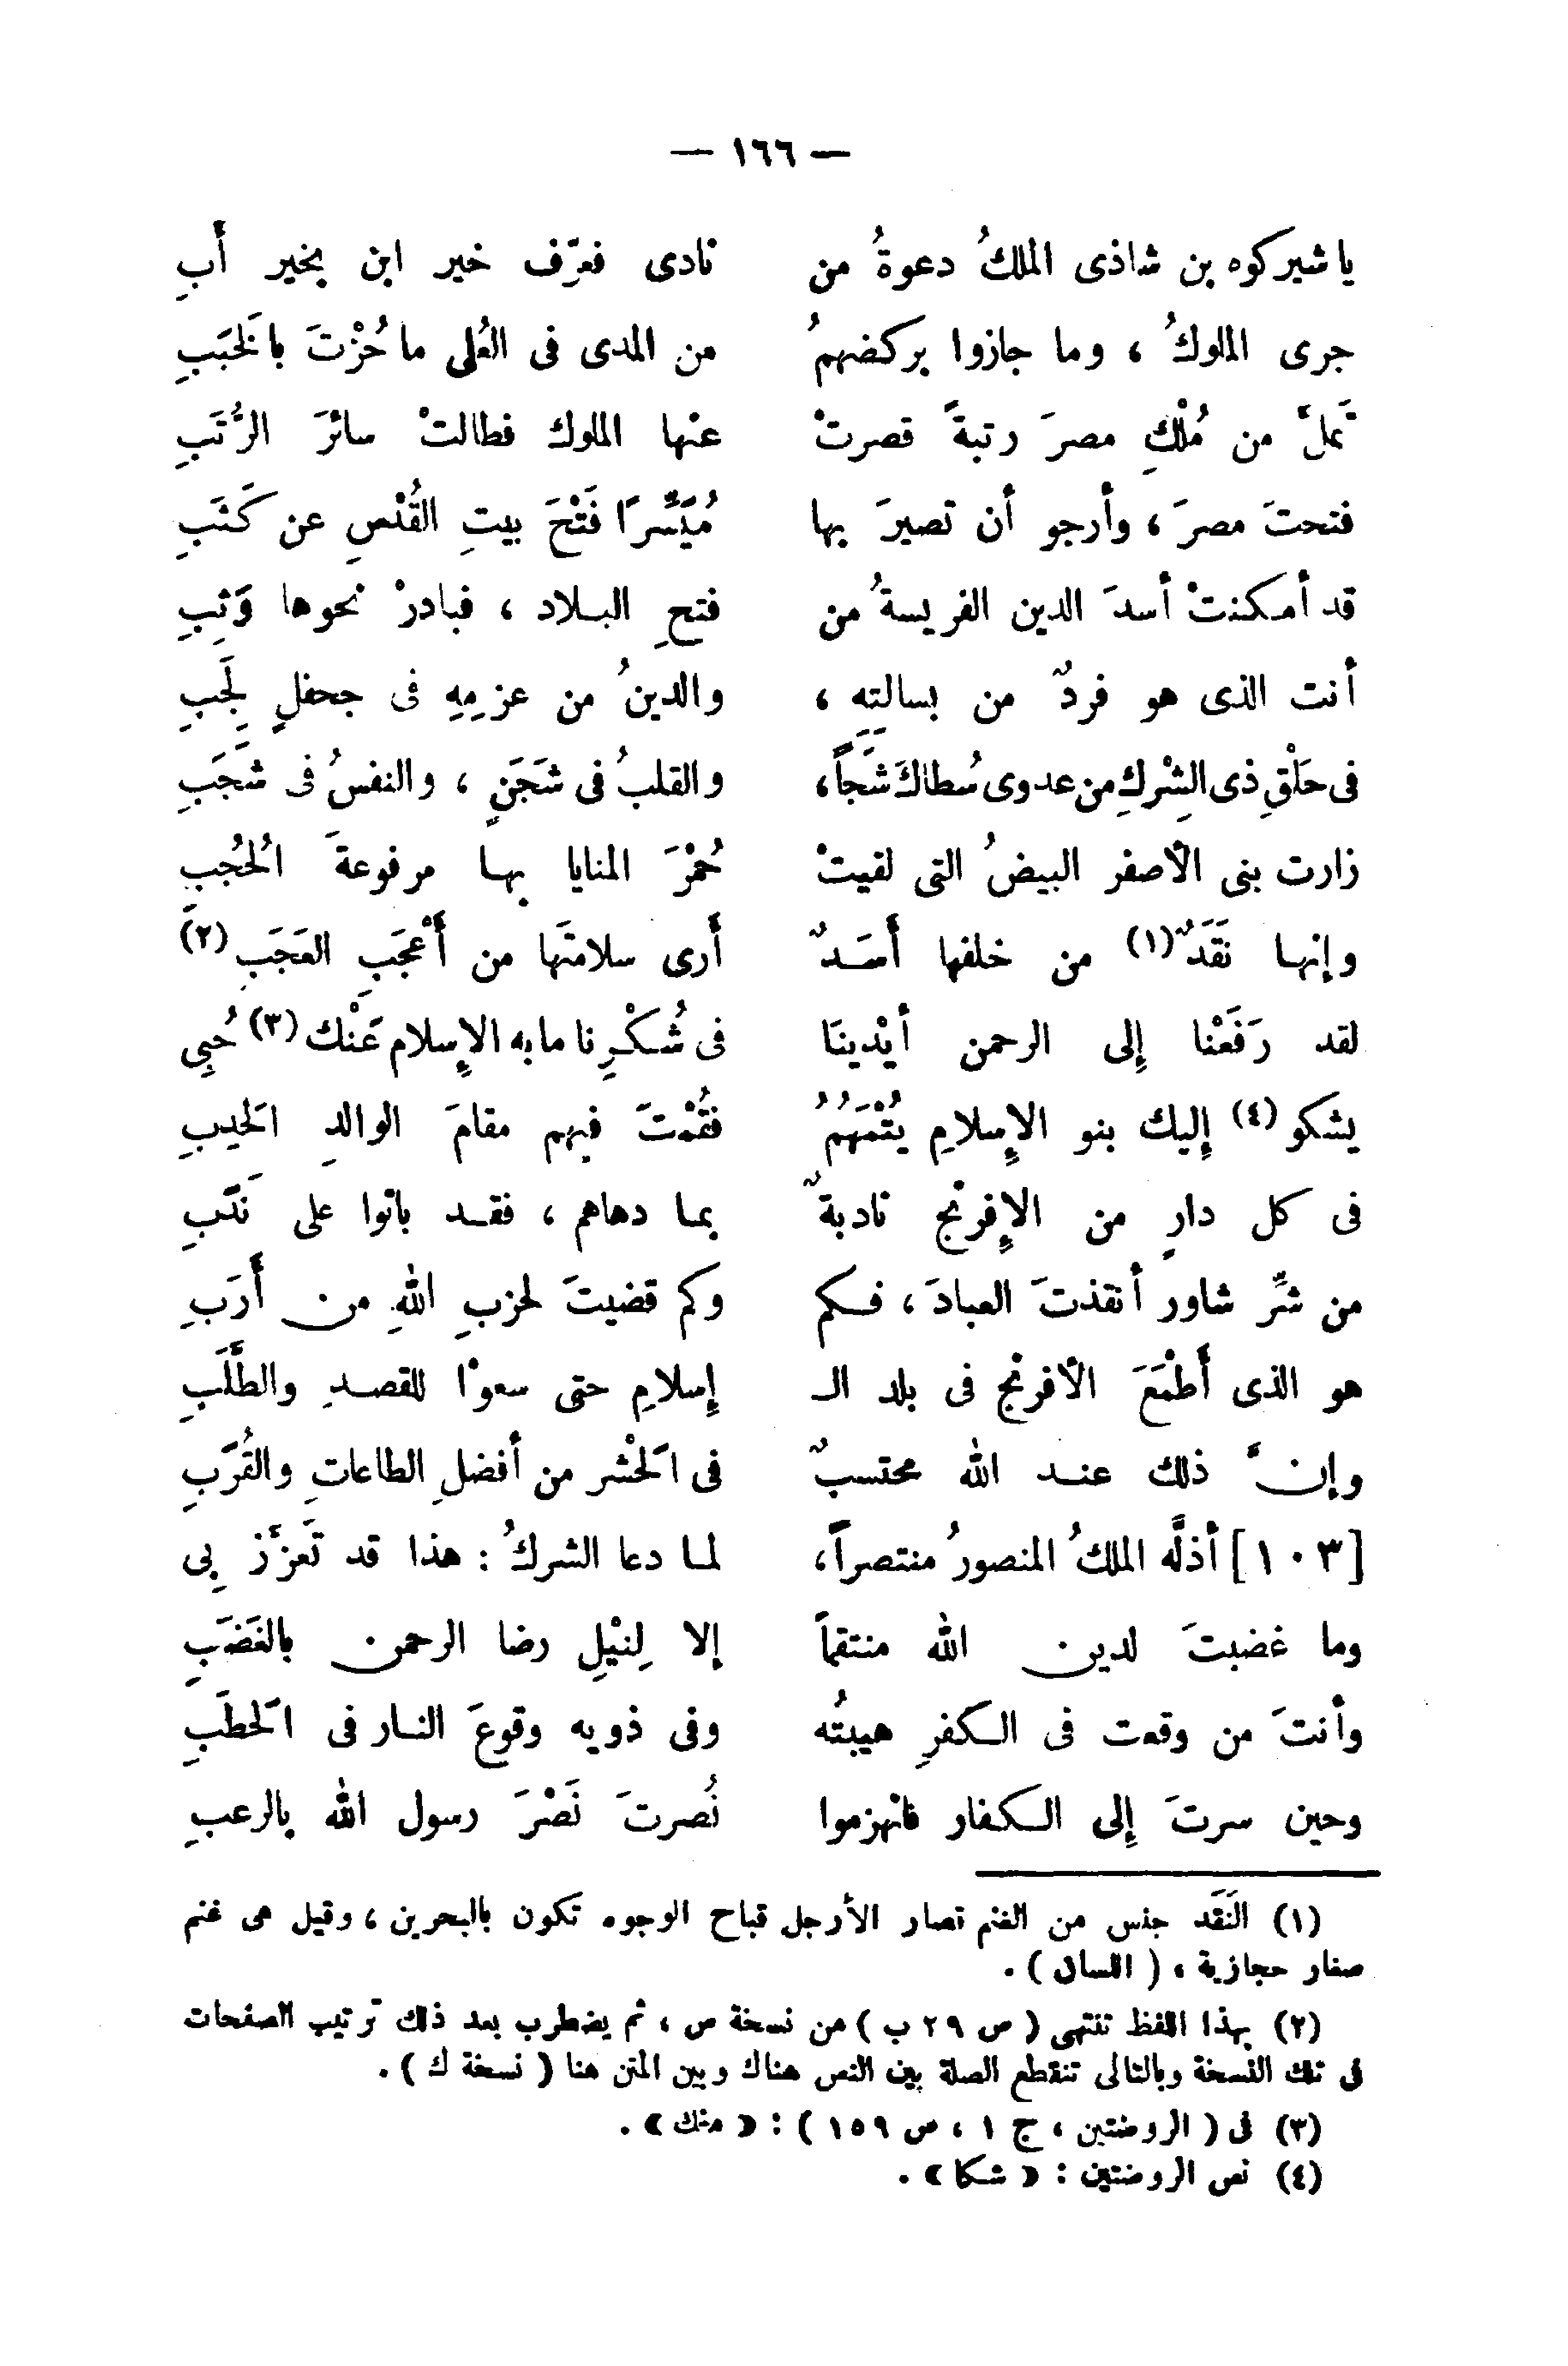 — ١٦٦ —
يا شيركوه بن شاذى الملكُ دعوةُ من نادى فعرِّف خير ابن بخير أَبِ
جرى الملوكُ ، وما جازوا بركضهمُ من المدى فى العُلى ما حُزْتَ بالخَبَبِ
تَملَّ من مُلْكِ مصرَ رتبةً قصرتْ عنها الملوك فطالتْ سائرَ الرُّتَبِ
فتحتَ مصرَ ، وأرجو أن تصيرَ بها مُيَسِّرًا فَتْحَ بيتِ القُدْسِ عن كَثَبِ
قد أمكنتْ أسدَ الدين الفريسةُ من فتحِ البلاد ، فبادرْ نحوها وَثِبِ
أنت الذى هو فردٌ من بسالتِهِ ، والدينُ من عزمِهِ فى جحفلٍ لَجِبِ
فى حَلْقِ ذى الشِرْكِ من عدوى سُطاكَ شَجاً ، والقلبُ فى شَجَنٍ ، والنفسُ فى شَجَبِ
زارت بنى الأصفر البيضُ التى لقيتْ حُمْرَ المنايا بها مرفوعةَ الحُجُبِ
وإنها نَقَدٌ (١) من خلفها أَسَدٌ أَرى سلامتَها من أَعْجَبِ العَجَبِ (٢)
لقد رَفَعْنا إِلى الرحمن أيْدينَا فى شُكْرِنا ما به الإِسلام عَنْك (٣) حُبِى
يشكو (٤) إِليك بنو الإِسلامِ يُتْمَهُمُ فقُمْتَ فيهم مقامَ الوالدِ الحَدِبِ
فى كل دارٍ من الإِفرنْج نادبةٌ بما دهاهم ، فقد باتوا على نَدَبِ
من شرِّ شاور أنقذتَ العبادَ ، فكم وكم قضيتَ لحزبِ اللهِ من أَرَبِ
هو الذى أَطْمَعَ الأفرنْج فى بلد الـ إِسلامِ حتى سعوْا للقصدِ والطَّلَبِ
وإن ذلك عند الله محتسبٌ فى الحَشْر من أفضلِ الطاعاتِ والقُرَبِ
[١٠٣] أذلَّه الملكُ المنصورُ منتصراً ، لما دعا الشركُ : هذا قد تَعزَّز بِى
وما غضبتَ لدين الله منتقماً إلا لِنَيْلِ رضا الرحمن بالغَضَبِ
وأنتَ من وقعت فى الكفرِ هيبتُه وفى ذويه وقوعَ النار فى الحَطَبِ
وحين سرتَ إِلى الكفار فانهزموا نُصرتَ نَصْرَ رسول الله بالرعبِ
(١) النَقَد جنس من الغنم قصار الأرجل قباح الوجوه تكون بالبحرين ، وقيل هى غنم
صغار حجازية ، ( اللسان ) .
(٢) بهذا اللفظ تنتهى ( ص ٢٩ ب ) من نسخة س ، ثم يضطرب بعد ذلك ترتيب الصفحات
فى تلك النسخة وبالتالى تنقطع الصلة بين النص هناك وبين المتن هنا ( نسخة ك ) .
(٣) فى ( الروضتين ، ج ١ ، ص ١٥٩ ) : « منك » .
(٤) نص الروضتين : « شكا » .